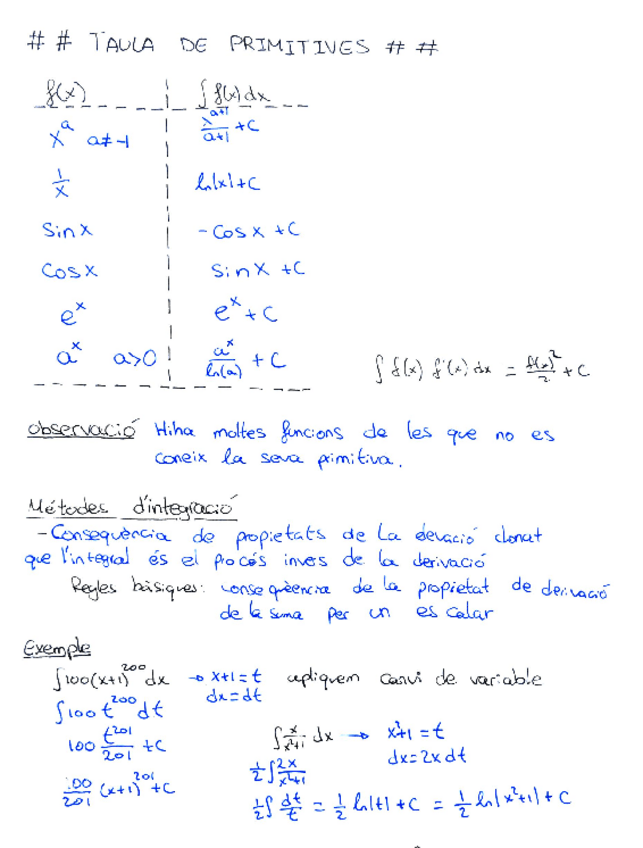 # # TAULA DE PRIMITIVES # #
f(x) | ∫ f(x) dx
x^a a≠-1 | x^(a+1)/(a+1) + C
1/x | ln|x| + C
Sin x | - Cos x + C
Cos x | Sin x + C
e^x | e^x + C
a^x a>0 | a^x/ln(a) + C
∫ f(x) f'(x) dx = f(x)^2/2 + C
observació Hiha moltes funcions de les que no es
coneix la seva primitiva.
Métodes d'integració
- Conseqüència de propietats de la devació donat
que l'integral és el procés invers de la derivació
Regles bàsiques: conseqüencia de la propietat de derivació
de la suma per un escalar
Exemple
∫100(x+1)^200 dx → x+1 = t apliquem canvi de variable
dx = dt
∫100 t^200 dt
100 t^201/201 + C
100/201 (x+1)^201 + C
∫ x/(x²+1) dx → x²+1 = t
dx = 2x dt
1/2 ∫ 2x/(x²+1)
1/2 ∫ dt/t = 1/2 ln|t| + C = 1/2 ln|x²+1| + C